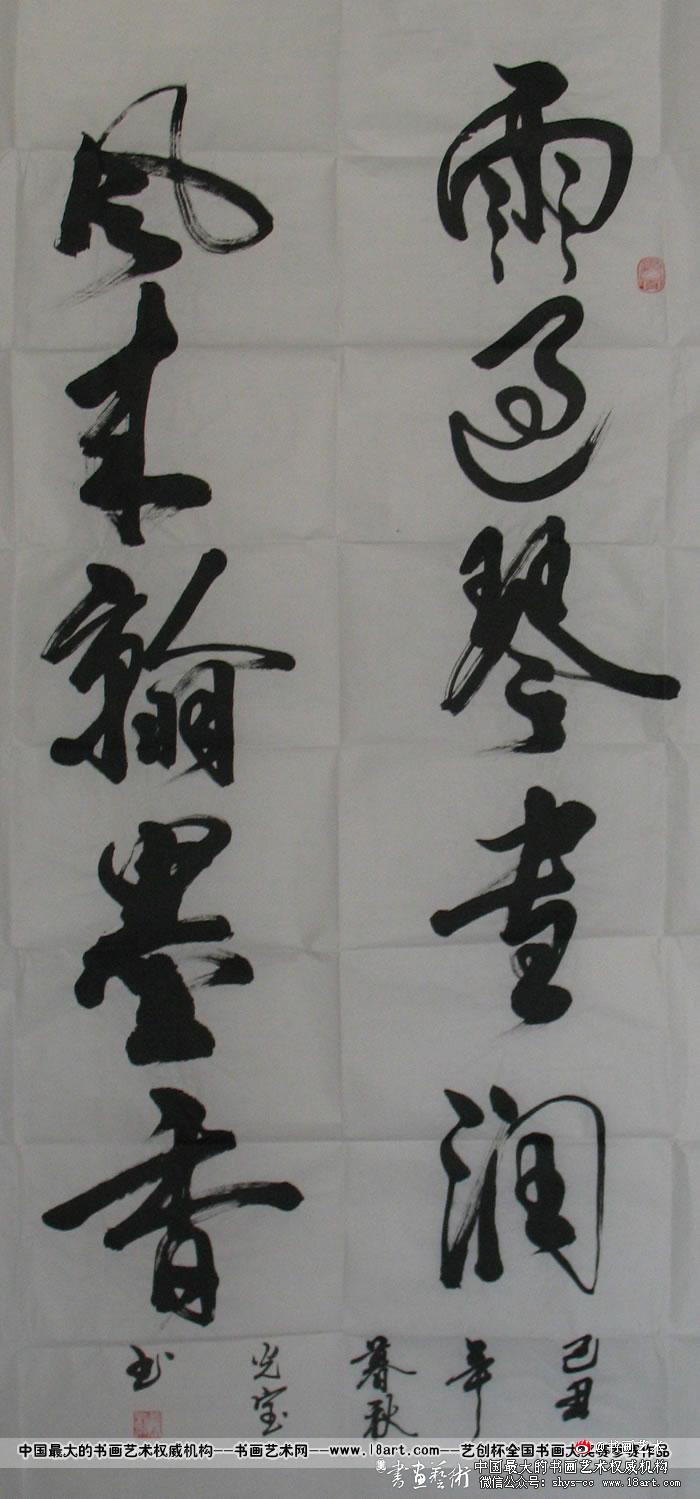 雨過琴書润
风来翰墨香
己丑
年
暮秋
光宝
书
@书画艺术
中国最大的书画艺术权威机构——书画艺术网——www.18art.com——艺创杯全国书画大奖赛参赛作品
書画藝術
中国最大的书画艺术权威机构
微信公众号: shys-cc www.18art.com